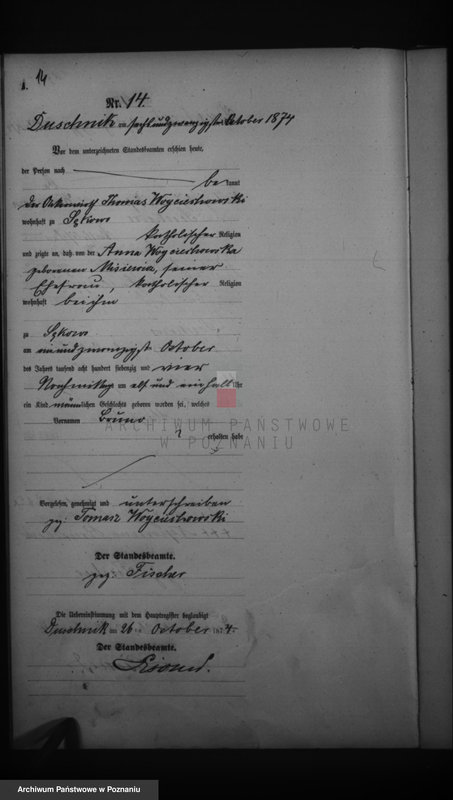 14
Nr. 14.
Duschnik am sechsundzwanzigst October 1874
Vor dem unterzeichneten Standesbeamten erschien heute,
der Person nach
bekannt
der Thomas Woyciechowski
wohnhaft zu Sękowo
katholischer Religion
und zeigte an, daß von der Anna Woyciechowska
geborenen Misiewicz, seiner
Ehefrau, katholischer Religion
wohnhaft bei ihm
zu Sękowo
am einundzwanzigst October
des Jahres tausend acht hundert siebenzig und vier
Nachmittag um elf und einhalb Uhr
ein Kind männlichen Geschlechts geboren worden sei, welches
Vornamen Bruno
erhalten habe
ARCHIWUM PAŃSTWOWE
W POZNANIU
Vorgelesen, genehmigt und unterschrieben
gez Tomasz Woyciechowski
Der Standesbeamte.
gez Fischer
Die Uebereinstimmung mit dem Hauptregister beglaubigt
Duschnik am 26 October 1874.
Der Standesbeamte.
Archiwum Państwowe w Poznaniu